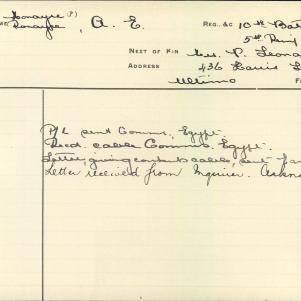 Lonayre (?)
Lonayre, A. E.
REG., &C 10th Bat
5th Reinf
NEXT OF KIN Mrs. P. Leona
ADDRESS 436 Harris S
Ultimo
P/L sent Comms, Egypt.
Recd. cable Comms. Egypt.
Letter, giving contents cable, sent
Letter received from Inquirer.